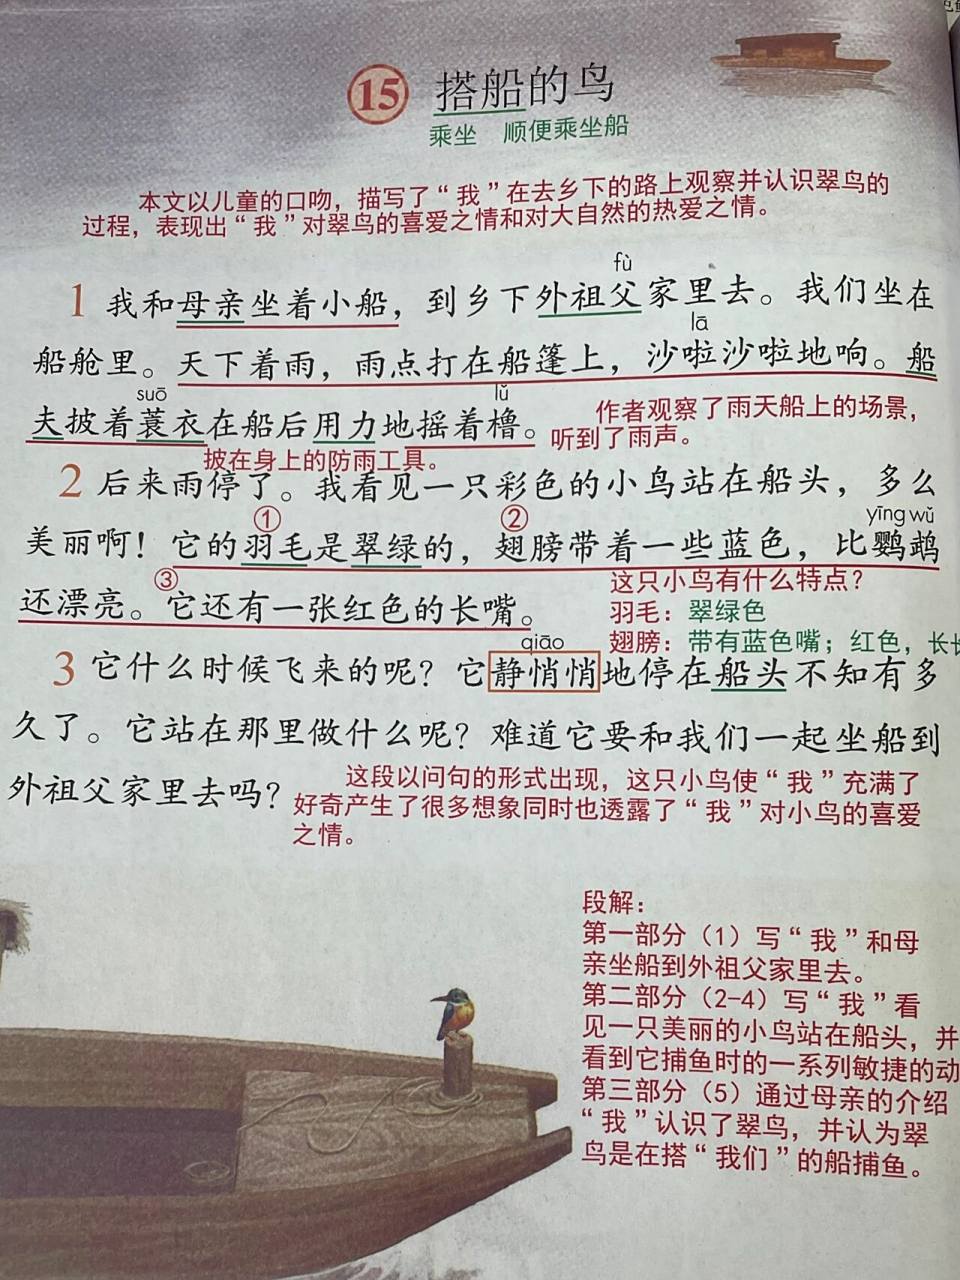 15 搭船的鸟
乘坐 顺便乘坐船
本文以儿童的口吻，描写了“我”在去乡下的路上观察并认识翠鸟的
过程，表现出“我”对翠鸟的喜爱之情和对大自然的热爱之情。
fù
1 我和母亲坐着小船，到乡下外祖父家里去。我们坐在
lā
船舱里。天下着雨，雨点打在船篷上，沙啦沙啦地响。船
suō lǔ
夫披着蓑衣在船后用力地摇着橹。
作者观察了雨天船上的场景，
听到了雨声。
披在身上的防雨工具。
2 后来雨停了。我看见一只彩色的小鸟站在船头，多么
① ② yīng wǔ
美丽啊！它的羽毛是翠绿的，翅膀带着一些蓝色，比鹦鹉
③
还漂亮。它还有一张红色的长嘴。
这只小鸟有什么特点？
羽毛：翠绿色
翅膀：带有蓝色嘴；红色，长长
qiāo
3 它什么时候飞来的呢？它静悄悄地停在船头不知有多
久了。它站在那里做什么呢？难道它要和我们一起坐船到
外祖父家里去吗？
这段以问句的形式出现，这只小鸟使“我”充满了
好奇产生了很多想象同时也透露了“我”对小鸟的喜爱
之情。
段解：
第一部分（1）写“我”和母
亲坐船到外祖父家里去。
第二部分（2-4）写“我”看
见一只美丽的小鸟站在船头，并
看到它捕鱼时的一系列敏捷的动
第三部分（5）通过母亲的介绍
“我”认识了翠鸟，并认为翠
鸟是在搭“我们”的船捕鱼。